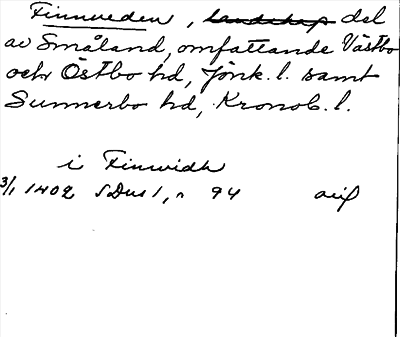 Finnveden, landskap del
av Småland, omfattande Västbo
och Östbo hd, Jönk. l. samt
Sunnerbo hd, Kronob. l.
i Finwidh
3/1 1402 SDns 1, n 94